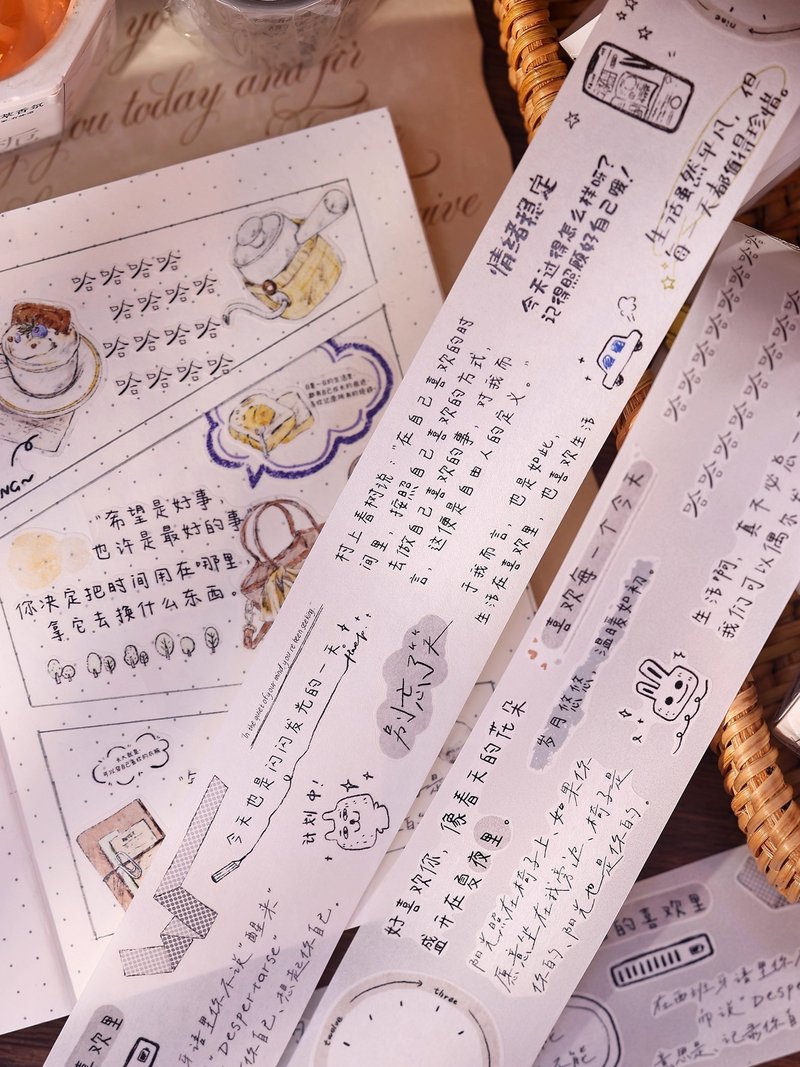 you today and for
give
哈哈哈哈
哈哈哈哈
哈哈哈哈
哈哈哈哈
NG~
"希望是好事,
也许是最好的事
你决定把时间用在哪里,
拿它去换什么东西。
nine
生活虽然平凡,但
每一天都值得珍惜。
情绪稳定
今天过得怎么样呀?
记得照顾好自己哦!
村上春树说:"在自己喜欢的时
间里,按照自己喜欢的方式,
去做自己喜欢的事,对我而
言,这便是自由人的定义。"
于我而言,也是如此,
生活在喜欢里,也喜欢生活
"In the quiet of your mind you've been seeking"
今天也是闪闪发光的一天
别忘了笑
计划中!
牙语里你不说"醒来"
"Despertarse"
你自己、想起你自己.
喜欢里
哈哈哈哈哈哈哈哈
哈哈哈哈哈哈
喜欢每一个今天
岁月悠悠,温暖如初。
生活啊,真不必总
我们可以偶尔
好喜欢你,像春天的花朵
盛开在夏夜里。
阳光照在椅子上、如果你
愿意坐在我旁边、椅子是
你的、阳光也是你的.
twelve
three
的喜欢里
在西班牙语里你
而说"Desp
意思是、记录你自